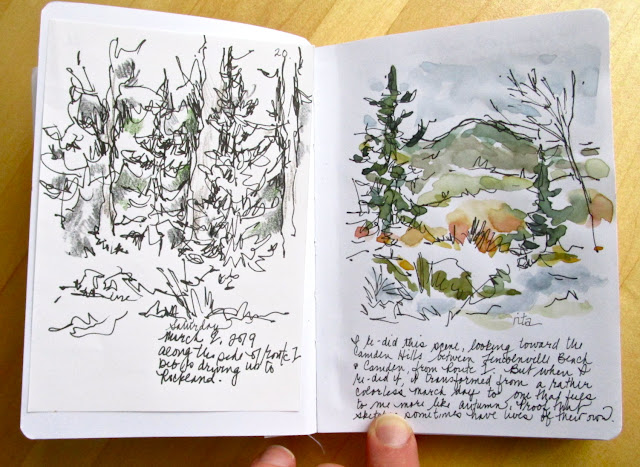 20
Saturday
March 2, 2019
along the side of Route 1
driving up to
Rockland.
rita
I re-did this scene, looking toward the
Camden Hills between Beach
& Camden, from Route 1. But when I
re-did it, it transformed from a rather
colorless March day to one that feels
to me more like autumn, proof that
sketches sometimes have lives of their own.